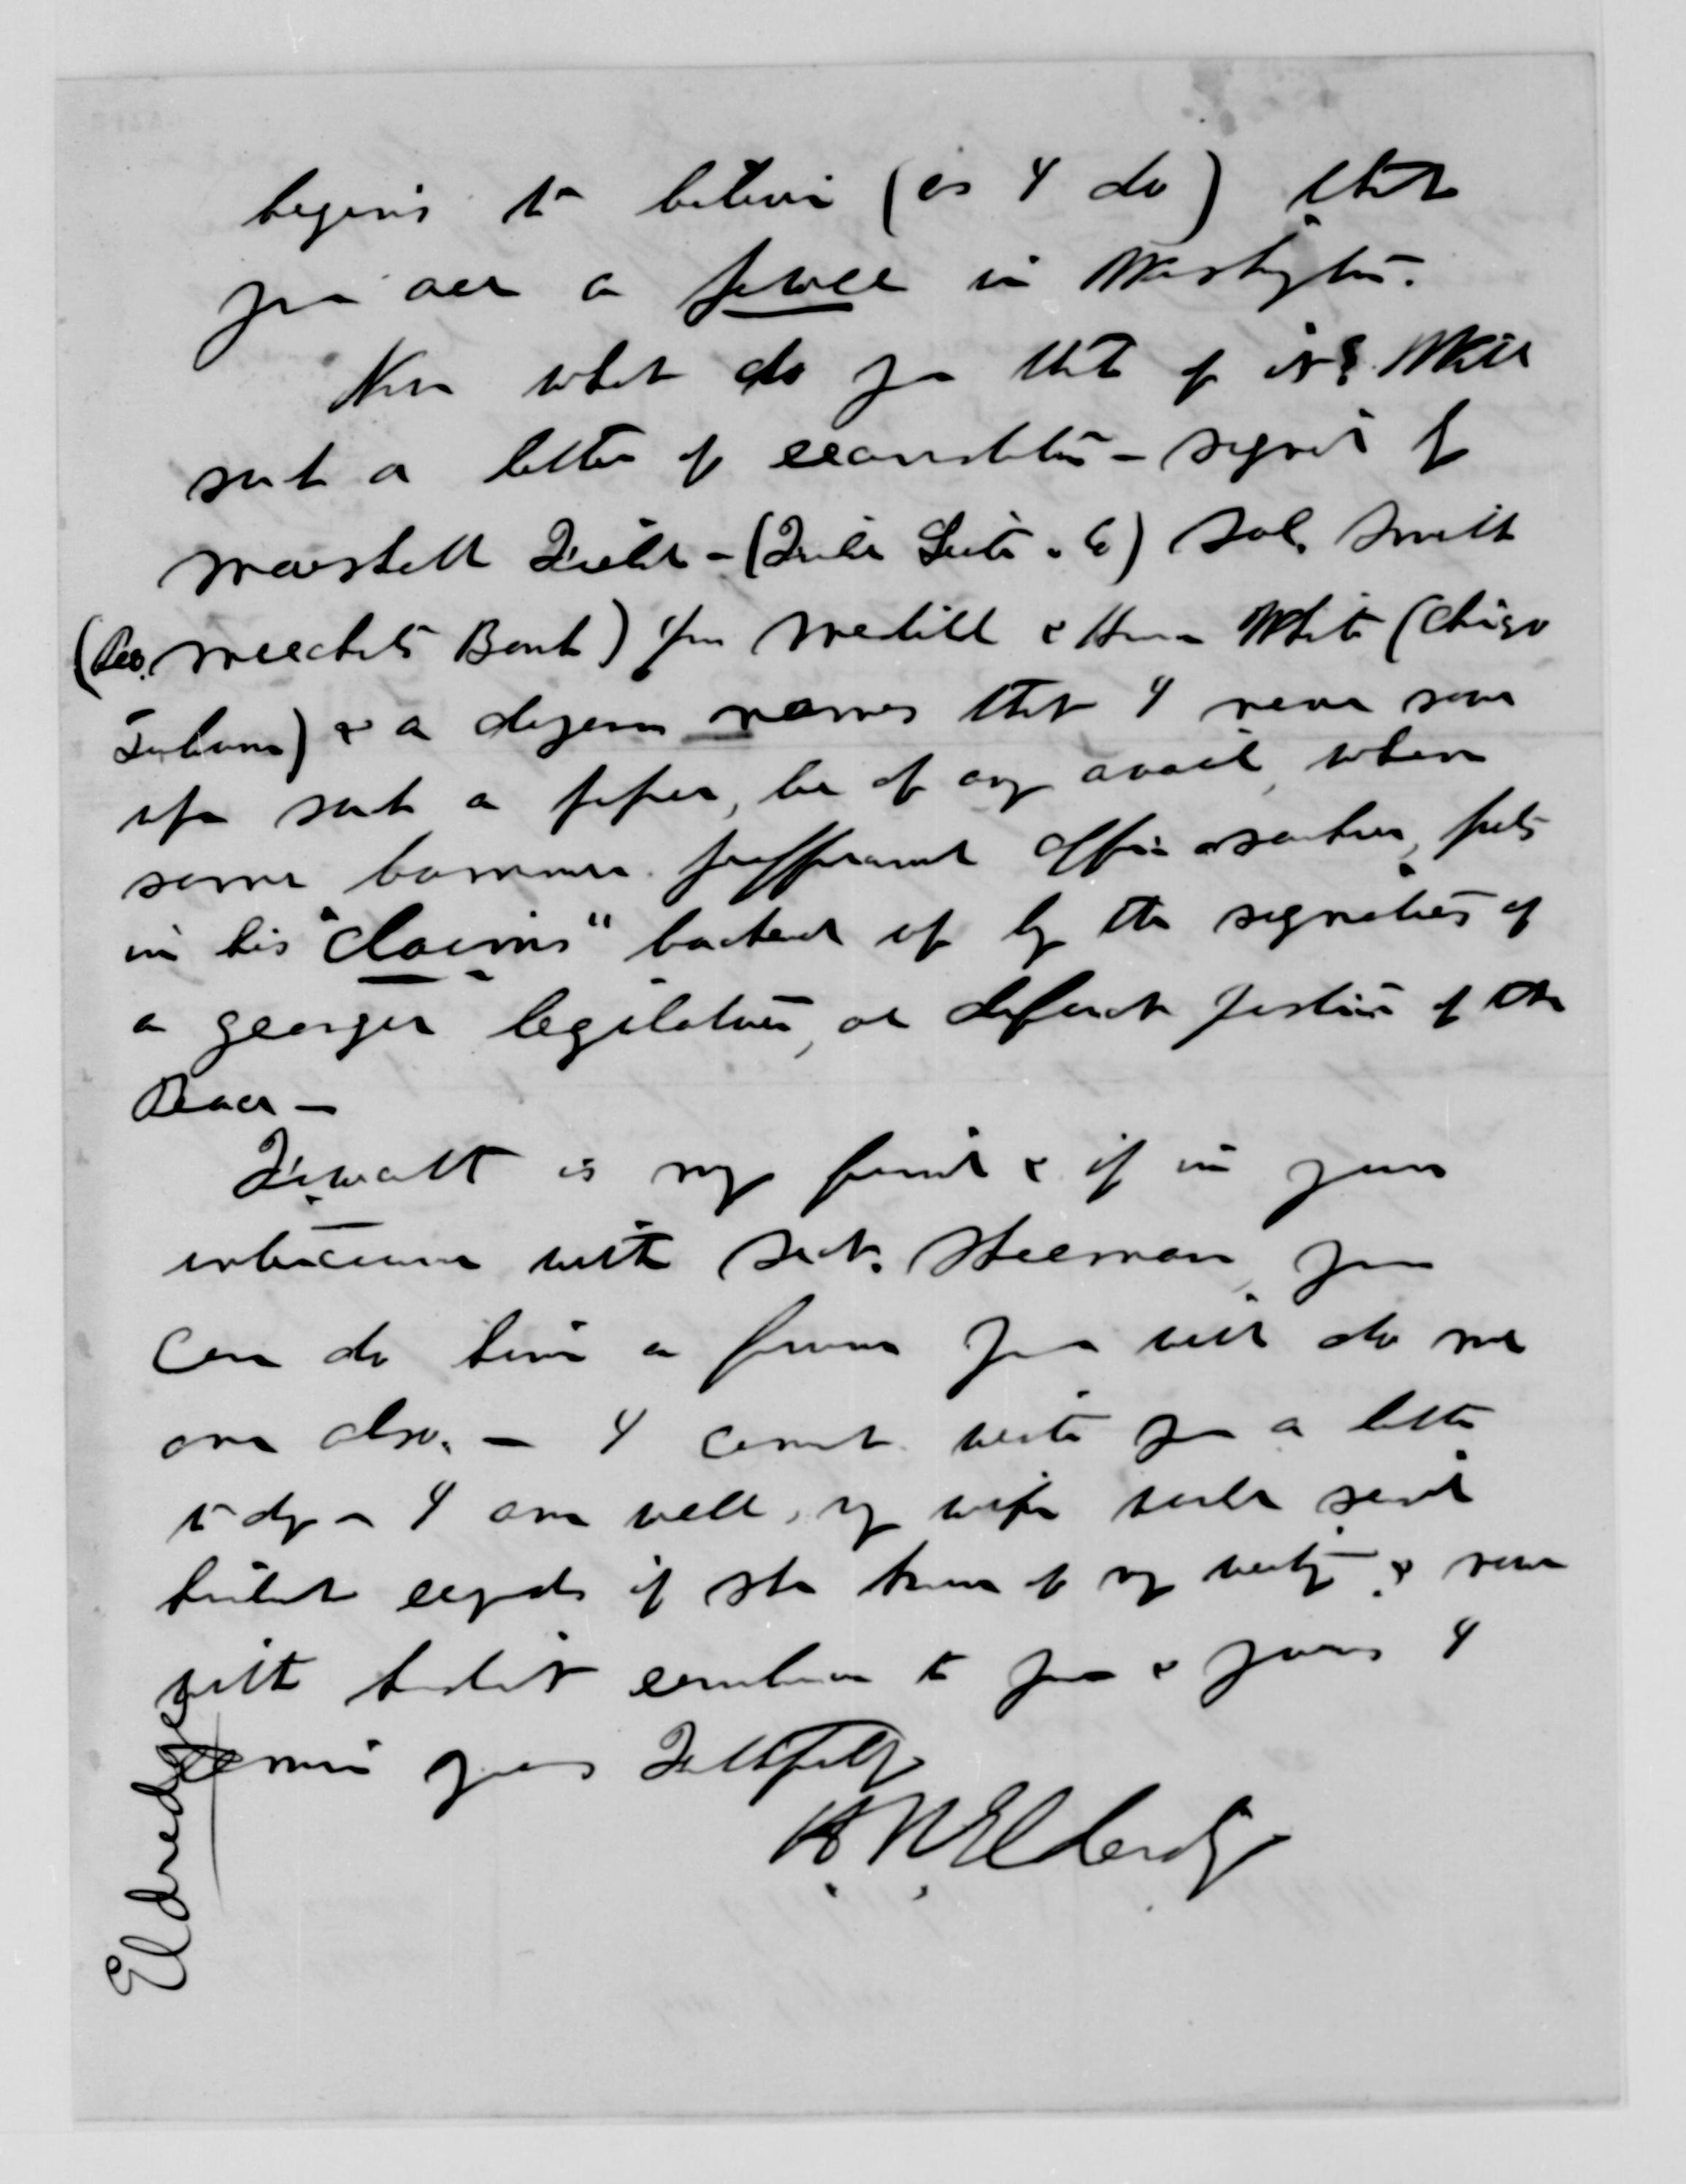 begins to believe (as I do) that
you are a power in Washington.
Now what do you think of it? Will
such a letter of recommendation - signed by
Marshall Field - (Field Leiter & Co) Sol. Smith
(Pres. Merchants Bank) Jos Medill & Horace White (Chicago
Tribune) & a dozen names that I never saw
upon such a paper, be of any avail, when
some bummer office seeker, puts
in his "claims" backed up by the signatures of
a Georgia legislature, or defunct Justice of the
Peace -
is my friend & if in your
intercourse with Sect. Sherman, you
can do him a favor you will do me
one also. - I cannot write you a letter
to day - I am well, my wife would send
kindest regards if she knew of my writing & now
with kindest remembrance to you & yours I
remain yours Faithfully
H. N. Eldredge
Eldredge